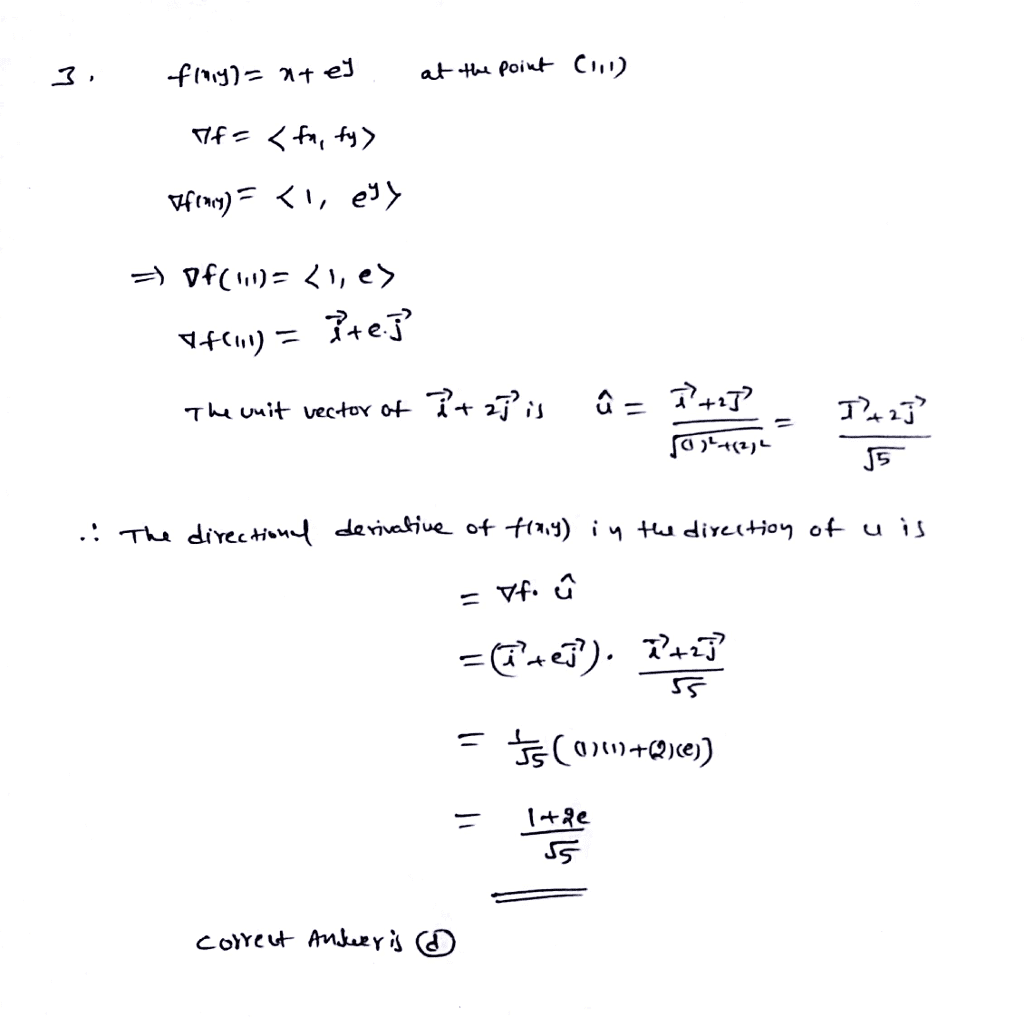 3. f(x,y) = x + e^y at the point (1,1)
∇f = < fx, fy >
∇f(x,y) = < 1, e^y >
⇒ ∇f(1,1) = < 1, e >
∇f(1,1) = i⃗ + e.j⃗
The unit vector of i⃗ + 2j⃗ is û = (i⃗ + 2j⃗)/√((1)^2 + (2)^2) = (i⃗ + 2j⃗)/√5
∴ The directional derivative of f(x,y) in the direction of u is
= ∇f. û
= (i⃗ + ej⃗). (i⃗ + 2j⃗)/√5
= 1/√5 ((1)(1) + (2)(e))
= (1 + 2e)/√5
correct Answer is ⓓ